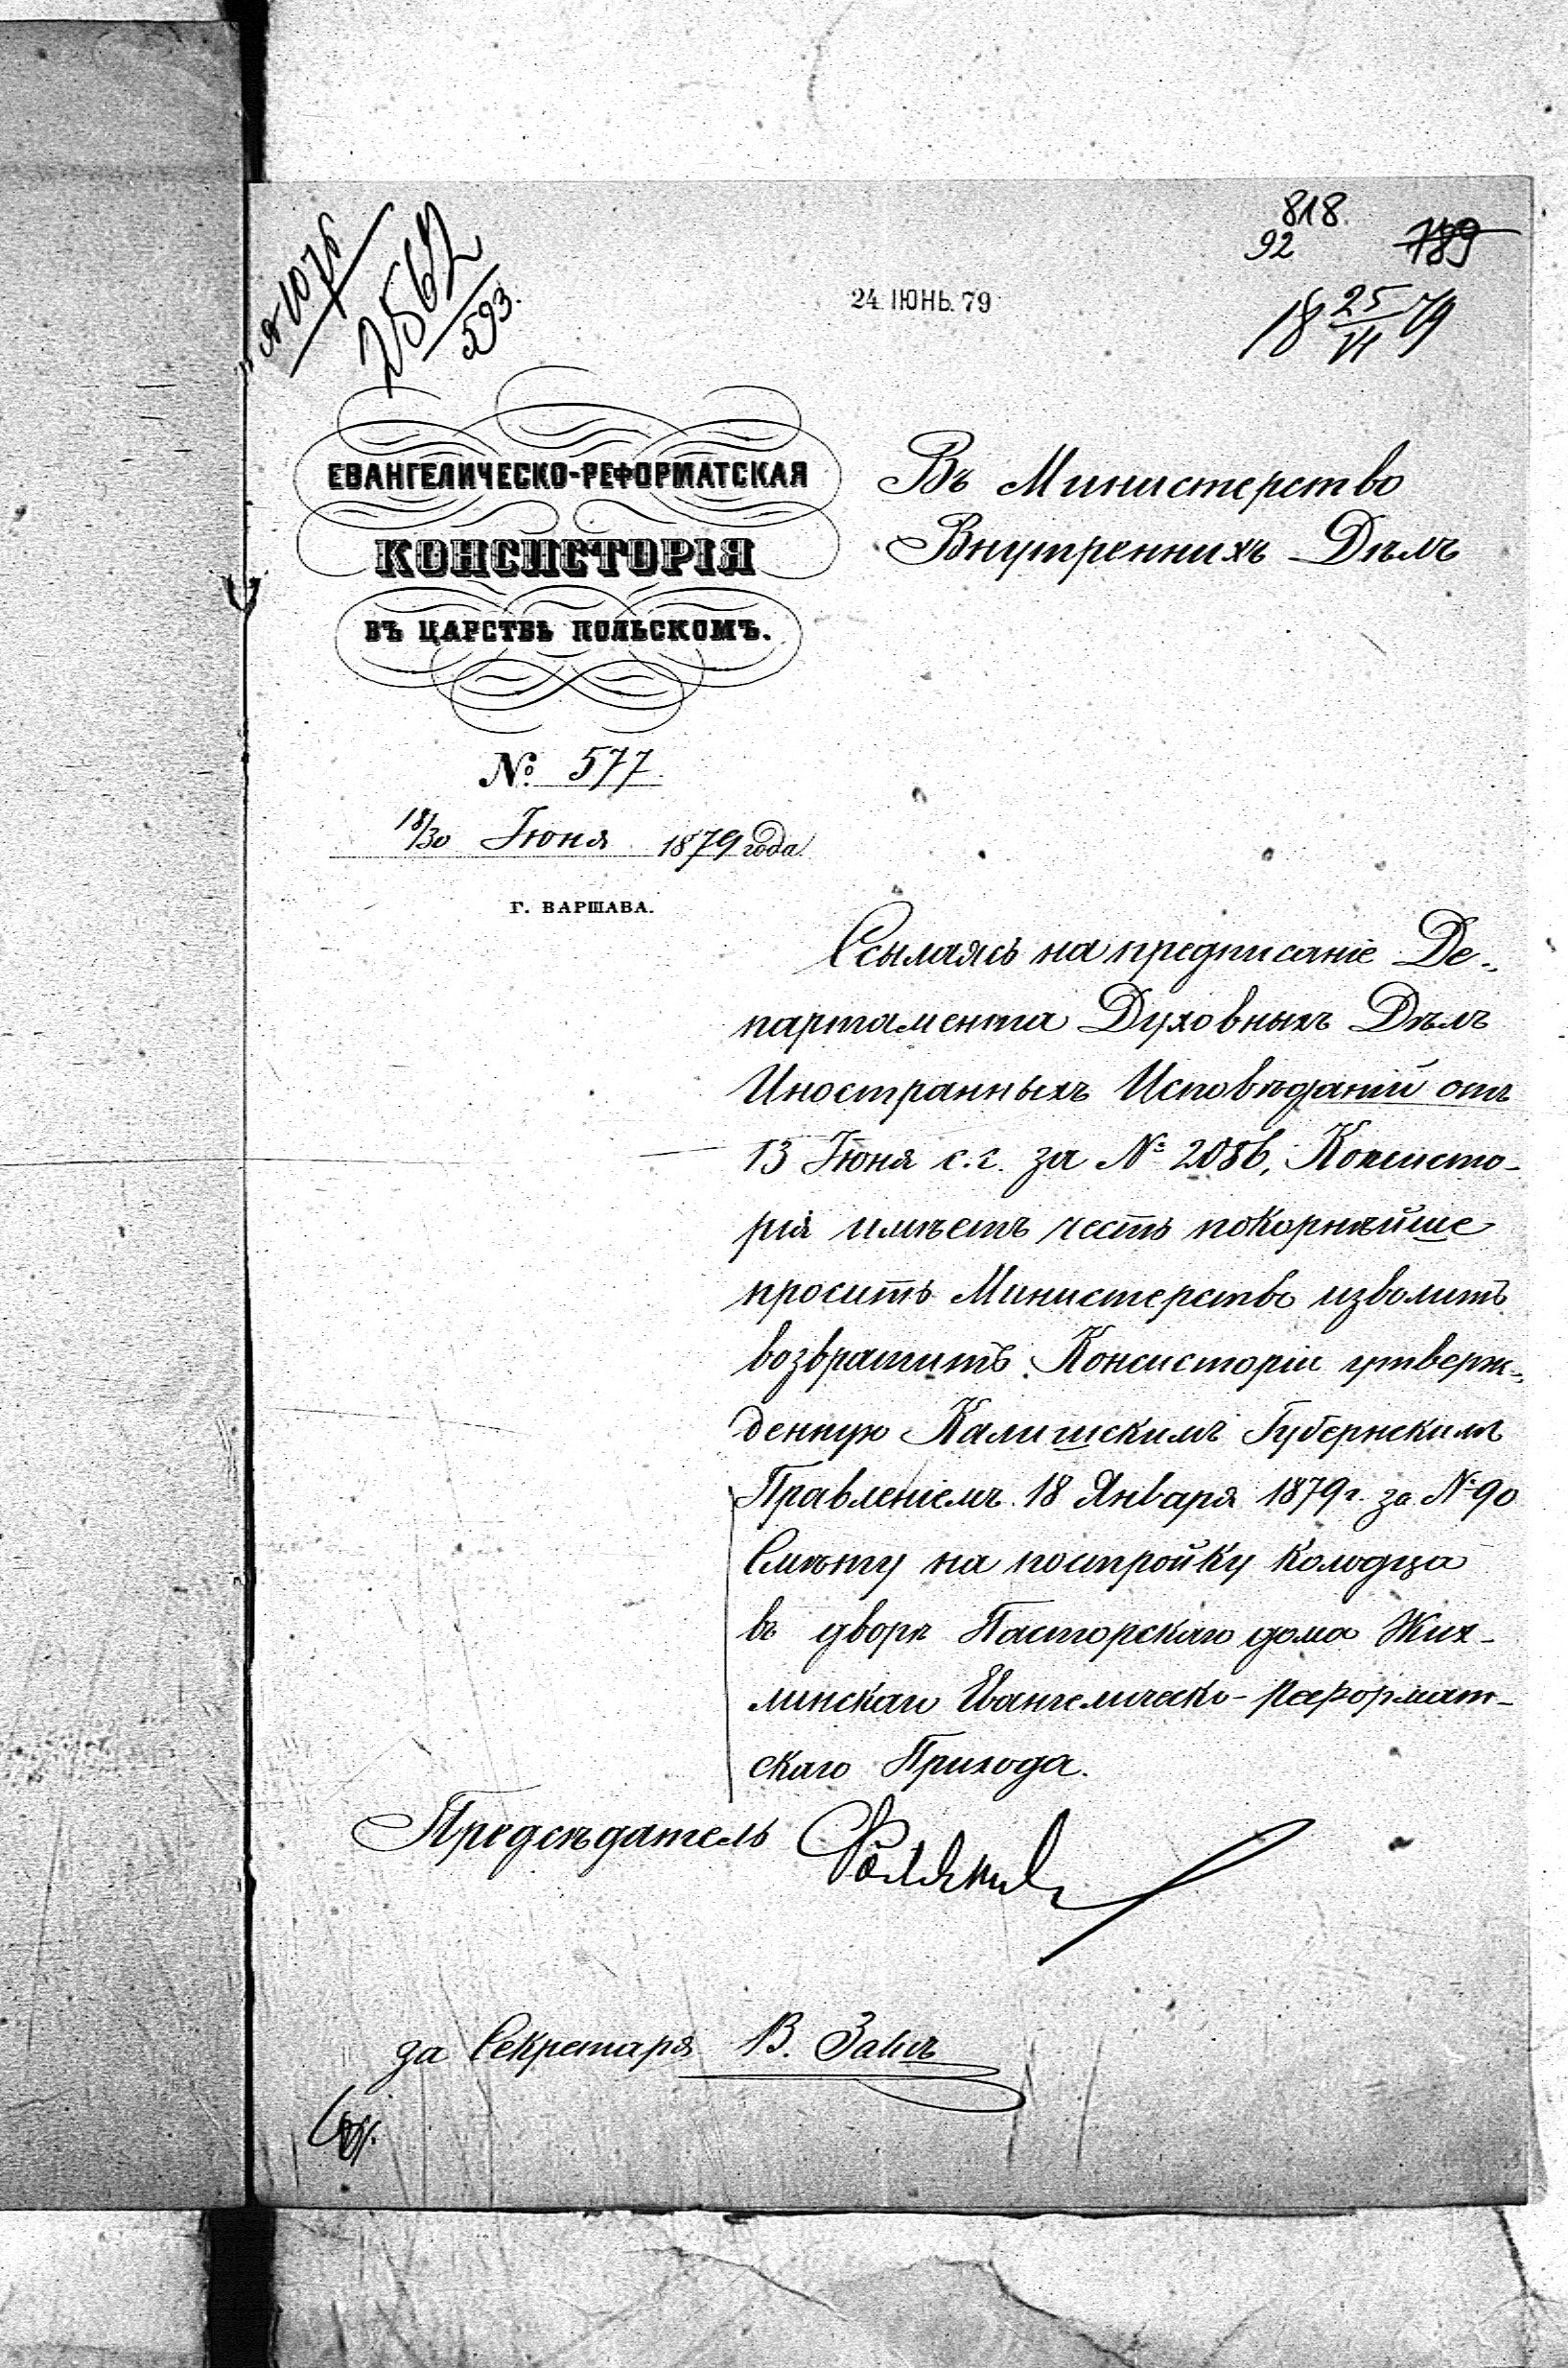 1076
2562
593.
818.
92
789
24 ІЮНЬ 79
18 25/VI 79
ЕВАНГЕЛИЧЕСКО-РЕФОРМАТСКАЯ
КОНСИСТОРІЯ
ВЪ ЦАРСТВѢ ПОЛЬСКОМЪ.
№ 577
18/30 Іюня 1879 года
Г. ВАРШАВА.
Въ Министерство
Внутреннихъ Дѣлъ
Ссылаясь на предписаніе Де-
партамента Духовныхъ Дѣлъ
Иностранныхъ Исповѣданій отъ
13 Іюня с. г. за № 2086, Консисто-
рія имѣетъ честь покорнѣйше
просить Министерство изволить
возвратить Консисторіи утверж-
денную Калишскимъ Губернскимъ
Правленіемъ 18 Января 1879 г. за № 90
Смѣту на постройку колодца
въ дворѣ Пасторскаго дома Жих-
линскаго Евангелическо-Реформат-
скаго Прихода.
Предсѣдатель
за Секретаря В.